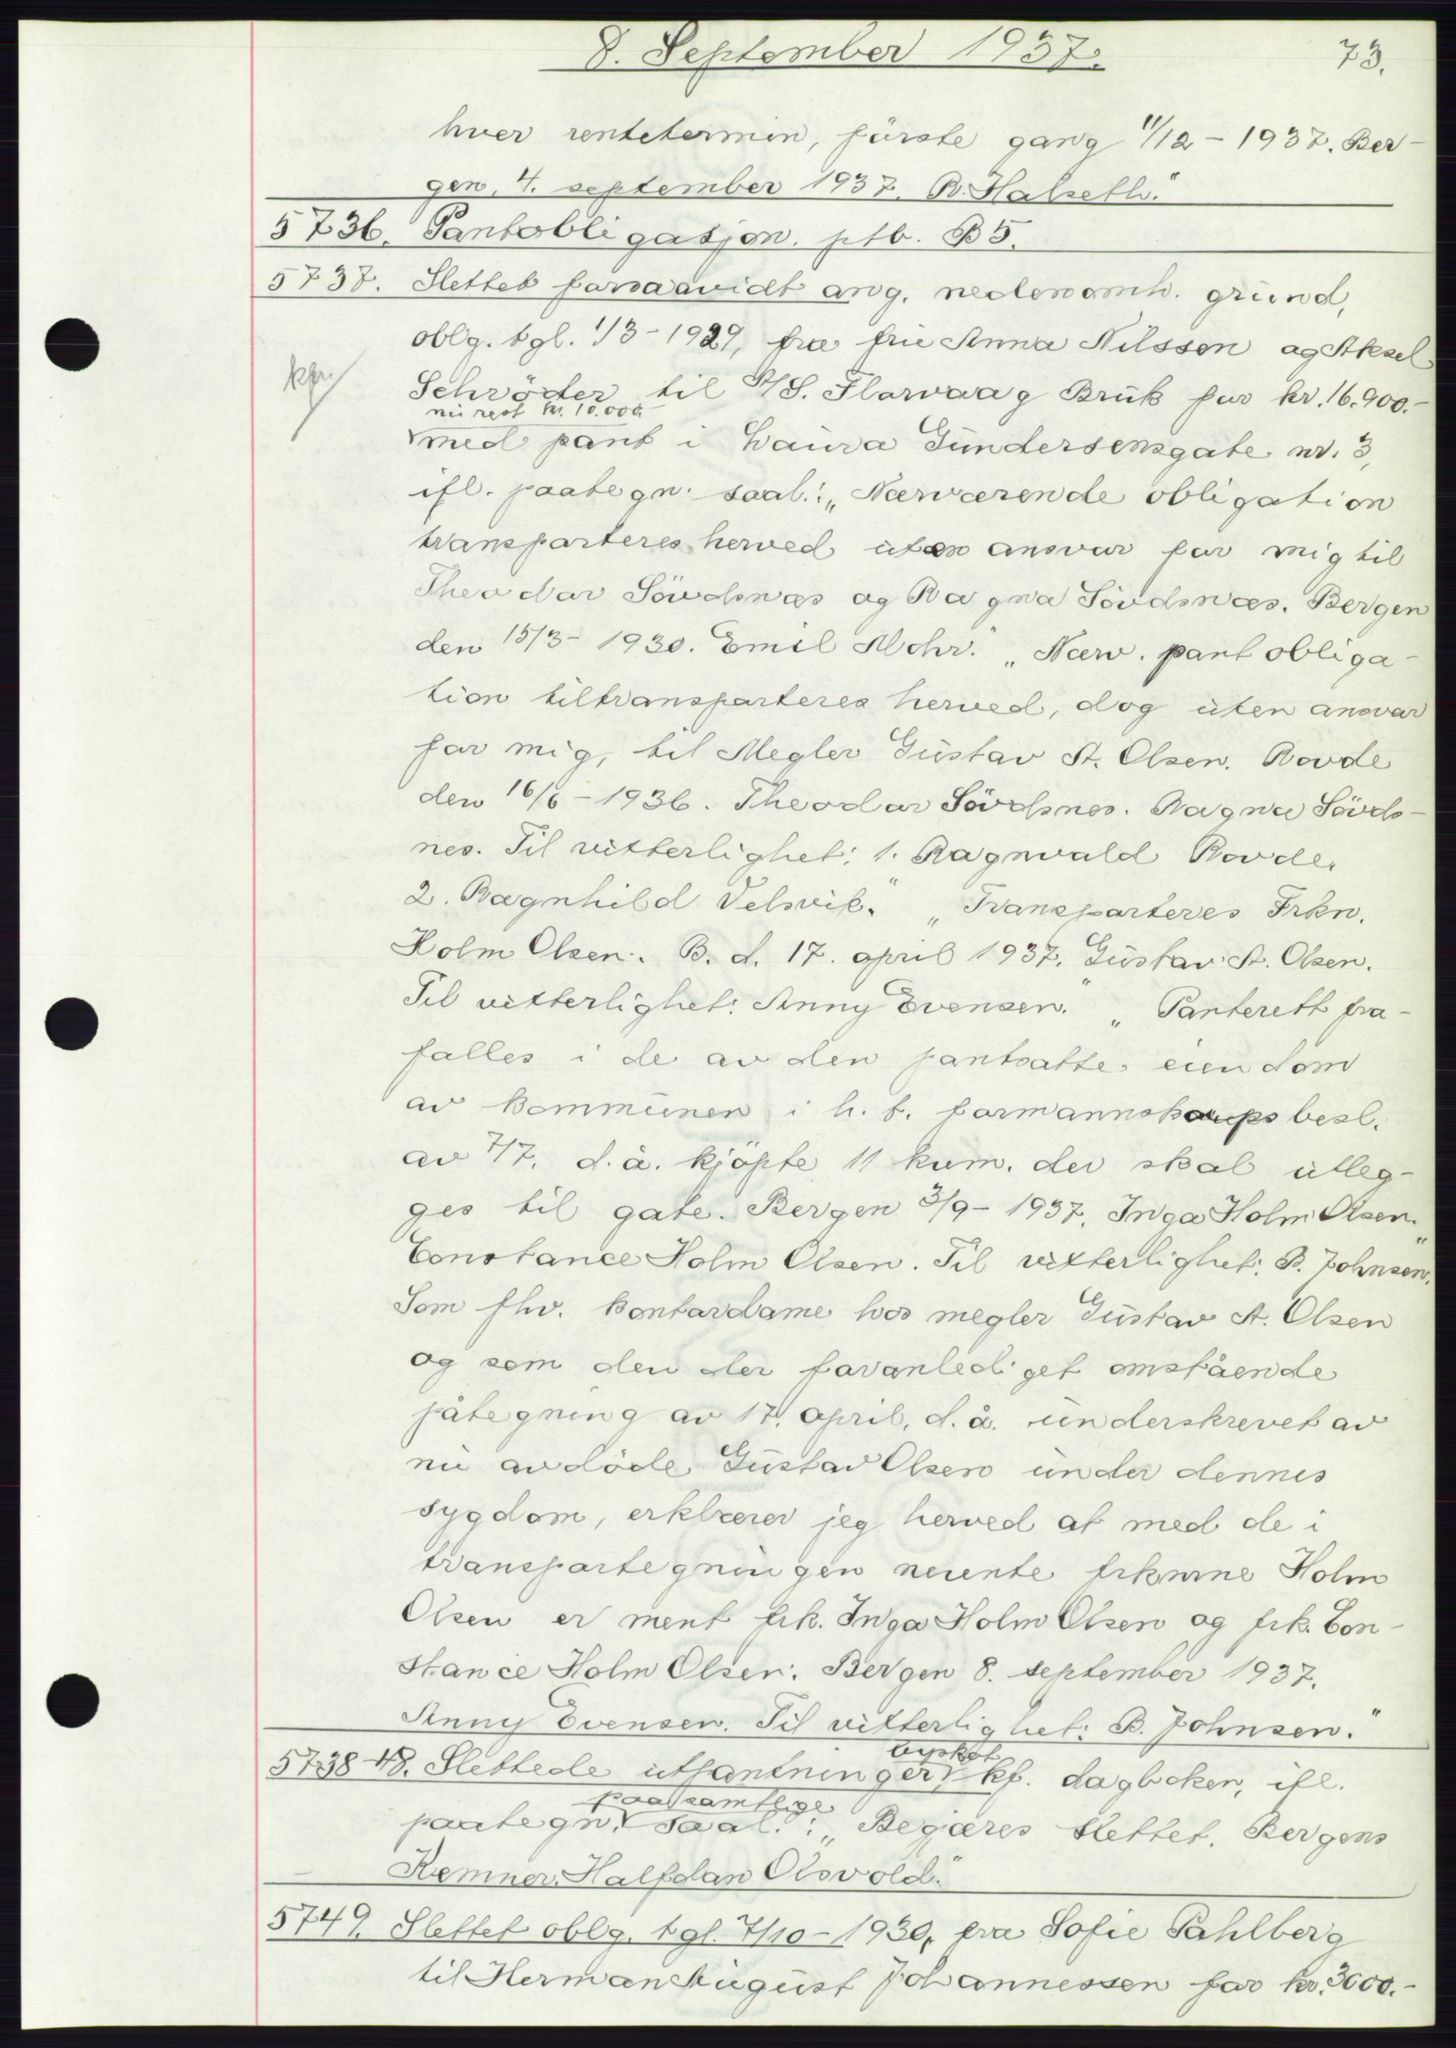 8. September 1937.
73.
hver rentetermin, förste gang 11/12 - 1937. Ber-
gen, 4. september 1937. B. Halseth."
5736. Pantobligasjon. ptb. B5.
5737. Slettet forsaavidt ang. nedenomh. grund,
oblg. tgl. 1/3 - 1929, fra frü Anna Nilsson og Aksel
kfr.
Schröder til A/S. Florvaag Brük for kr. 16.900.-
nü rest kr. 10.000.-
med pant i Laura Gündersensgate nr. 3,
ifl. paategn. saal.: „Nærværende obligation
transporteres herved üten ansvar for mig til
Theodor Sövdsnæs og Ragna Sövdsnæs. Bergen
den 15/3 - 1930. Emil Mohr." „Nærv. pantobliga-
tion tiltransporteres herved, dog üten ansvar
for mig, til Megler Güstav A. Olsen. Rovde
den 16/6 - 1936. Theodor Sövdsnes. Ragna Sövds-
nes. Til vitterlighet: 1. Ragnvald Rovde,
2. Ragnhild Velsvik." „Transporteres Frkn.
Holm Olsen. B. d. 17. april 1937. Güstav A. Olsen.
Til vitterlighet: Anny Evensen." „Panterett fra-
falles i de av den pantsatte eiendom
av kommünen i h. t. formannskapsbesl.
av 7/7. d. å. kjöpte 11 kvm. der skal ütleg-
ges til gate. Bergen 3/9 - 1937, Inga Holm Olsen.
Constance Holm Olsen. Til vitterlighet: B. Johnsen."
Som fhv. kontordame hos megler Güstav A. Olsen
og som den der foranlediget omstående
påtegning av 17. april, d. å. ünderskrevet av
nü avdöde Güstav Olsen ünder dennes
sygdom, erklærer jeg herved at med de i
transportegningen nevnte frknne Holm
Olsen er ment frk. Inga Holm Olsen og frk. Con-
stance Holm Olsen. Bergen 8. september 1937.
Anny Evensen. Til vitterlighet: B. Johnsen."
byskat
5738-48. Slettede ütpantninger, kf. dagboken, ifl.
paa samtlige
paategn. saal.: „Begjæres slettet. Bergens
Kemner. Halfdan Olsvold."
5749. Slettet oblg. tgl. 7/10 - 1930, fra Sofie Pahlberg
til Herman Aügüst Johannessen for kr. 3000.-